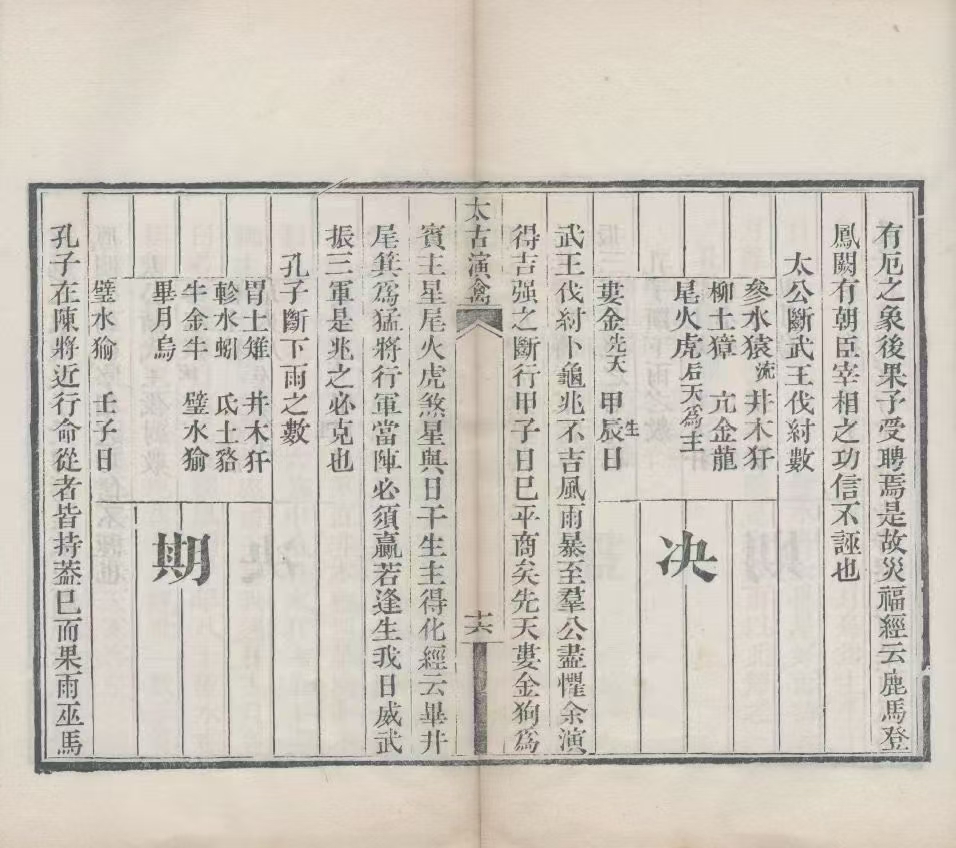 有厄之象後果子受聘焉是故災福經云鹿馬登
鳳闕有朝臣宰相之功信不誣也
太公斷武王伐紂數
參水猿流 井木犴
柳土獐 亢金龍
尾火虎后天為主
婁金先天 甲辰日生
决
武王伐紂卜龜兆不吉風雨暴至羣公盡懼余演
得吉强之斷行甲子日巳平商矣先天婁金狗爲
太古演禽
十六
賓主星尾火虎煞星與日干生主得化經云畢井
尾箕爲猛將行軍當陣必須贏若逢生我日威武
振三軍是兆之必克也
孔子斷下雨之數
胃土雉 井木犴
軫水蚓 氐土貉
牛金牛 璧水㺄
畢月烏
期
璧水㺄 壬子日
孔子在陳將近行命從者皆持葢巳而果雨巫馬